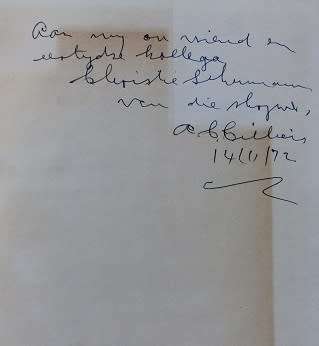 Aan my ou vriend en
eertydse kollega,
Christie Schumann
van die skrywer,
A C Cilliers
14/11/72